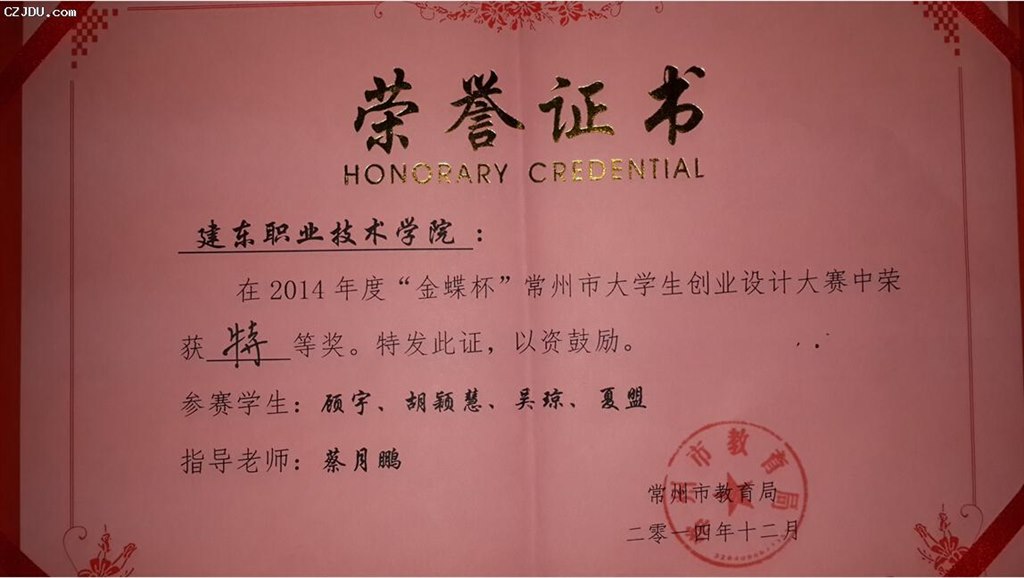 CZJDU.com
荣誉证书
HONORARY CREDENTIAL
建东职业技术学院：
在2014年度“金蝶杯”常州市大学生创业设计大赛中荣
获 特 等奖。特发此证，以资鼓励。
参赛学生：顾宇、胡颖慧、吴琼、夏盟
指导老师：蔡月鹏
常州市教育局
常州市教育局
二零一四年十二月